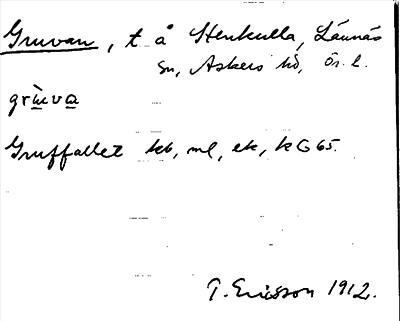 Gruvan, t å Stenkulla, Lännäs
sn, Askers hd, Ör. l.
grùva
Gruffallet kb, ml, ek, k G 65.
T. Ericsson 1912.